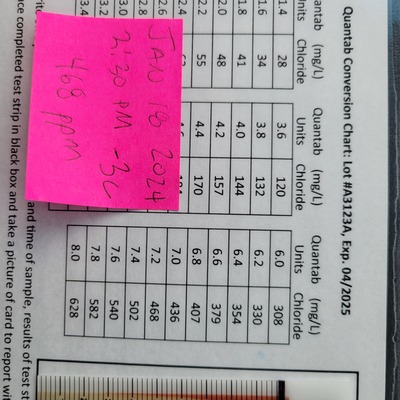 Quantab Conversion Chart: Lot #A3123A, Exp. 04/2025
Quantab Units Chloride (mg/L)
1.4 28
1.6 34
1.8 41
2.0 48
2.2 55
2.4
2.6
2.8
3.0
3.2
3.4
Quantab Units Chloride (mg/L)
3.6 120
3.8 132
4.0 144
4.2 157
4.4 170
Quantab Units Chloride (mg/L)
6.0 308
6.2 330
6.4 354
6.6 379
6.8 407
7.0 436
7.2 468
7.4 502
7.6 540
7.8 582
8.0 628
JAN 18 2024
2:30 PM -3C
468 ppm
and time of sample, results of test st
ce completed test strip in black box and take a picture of card to report wit